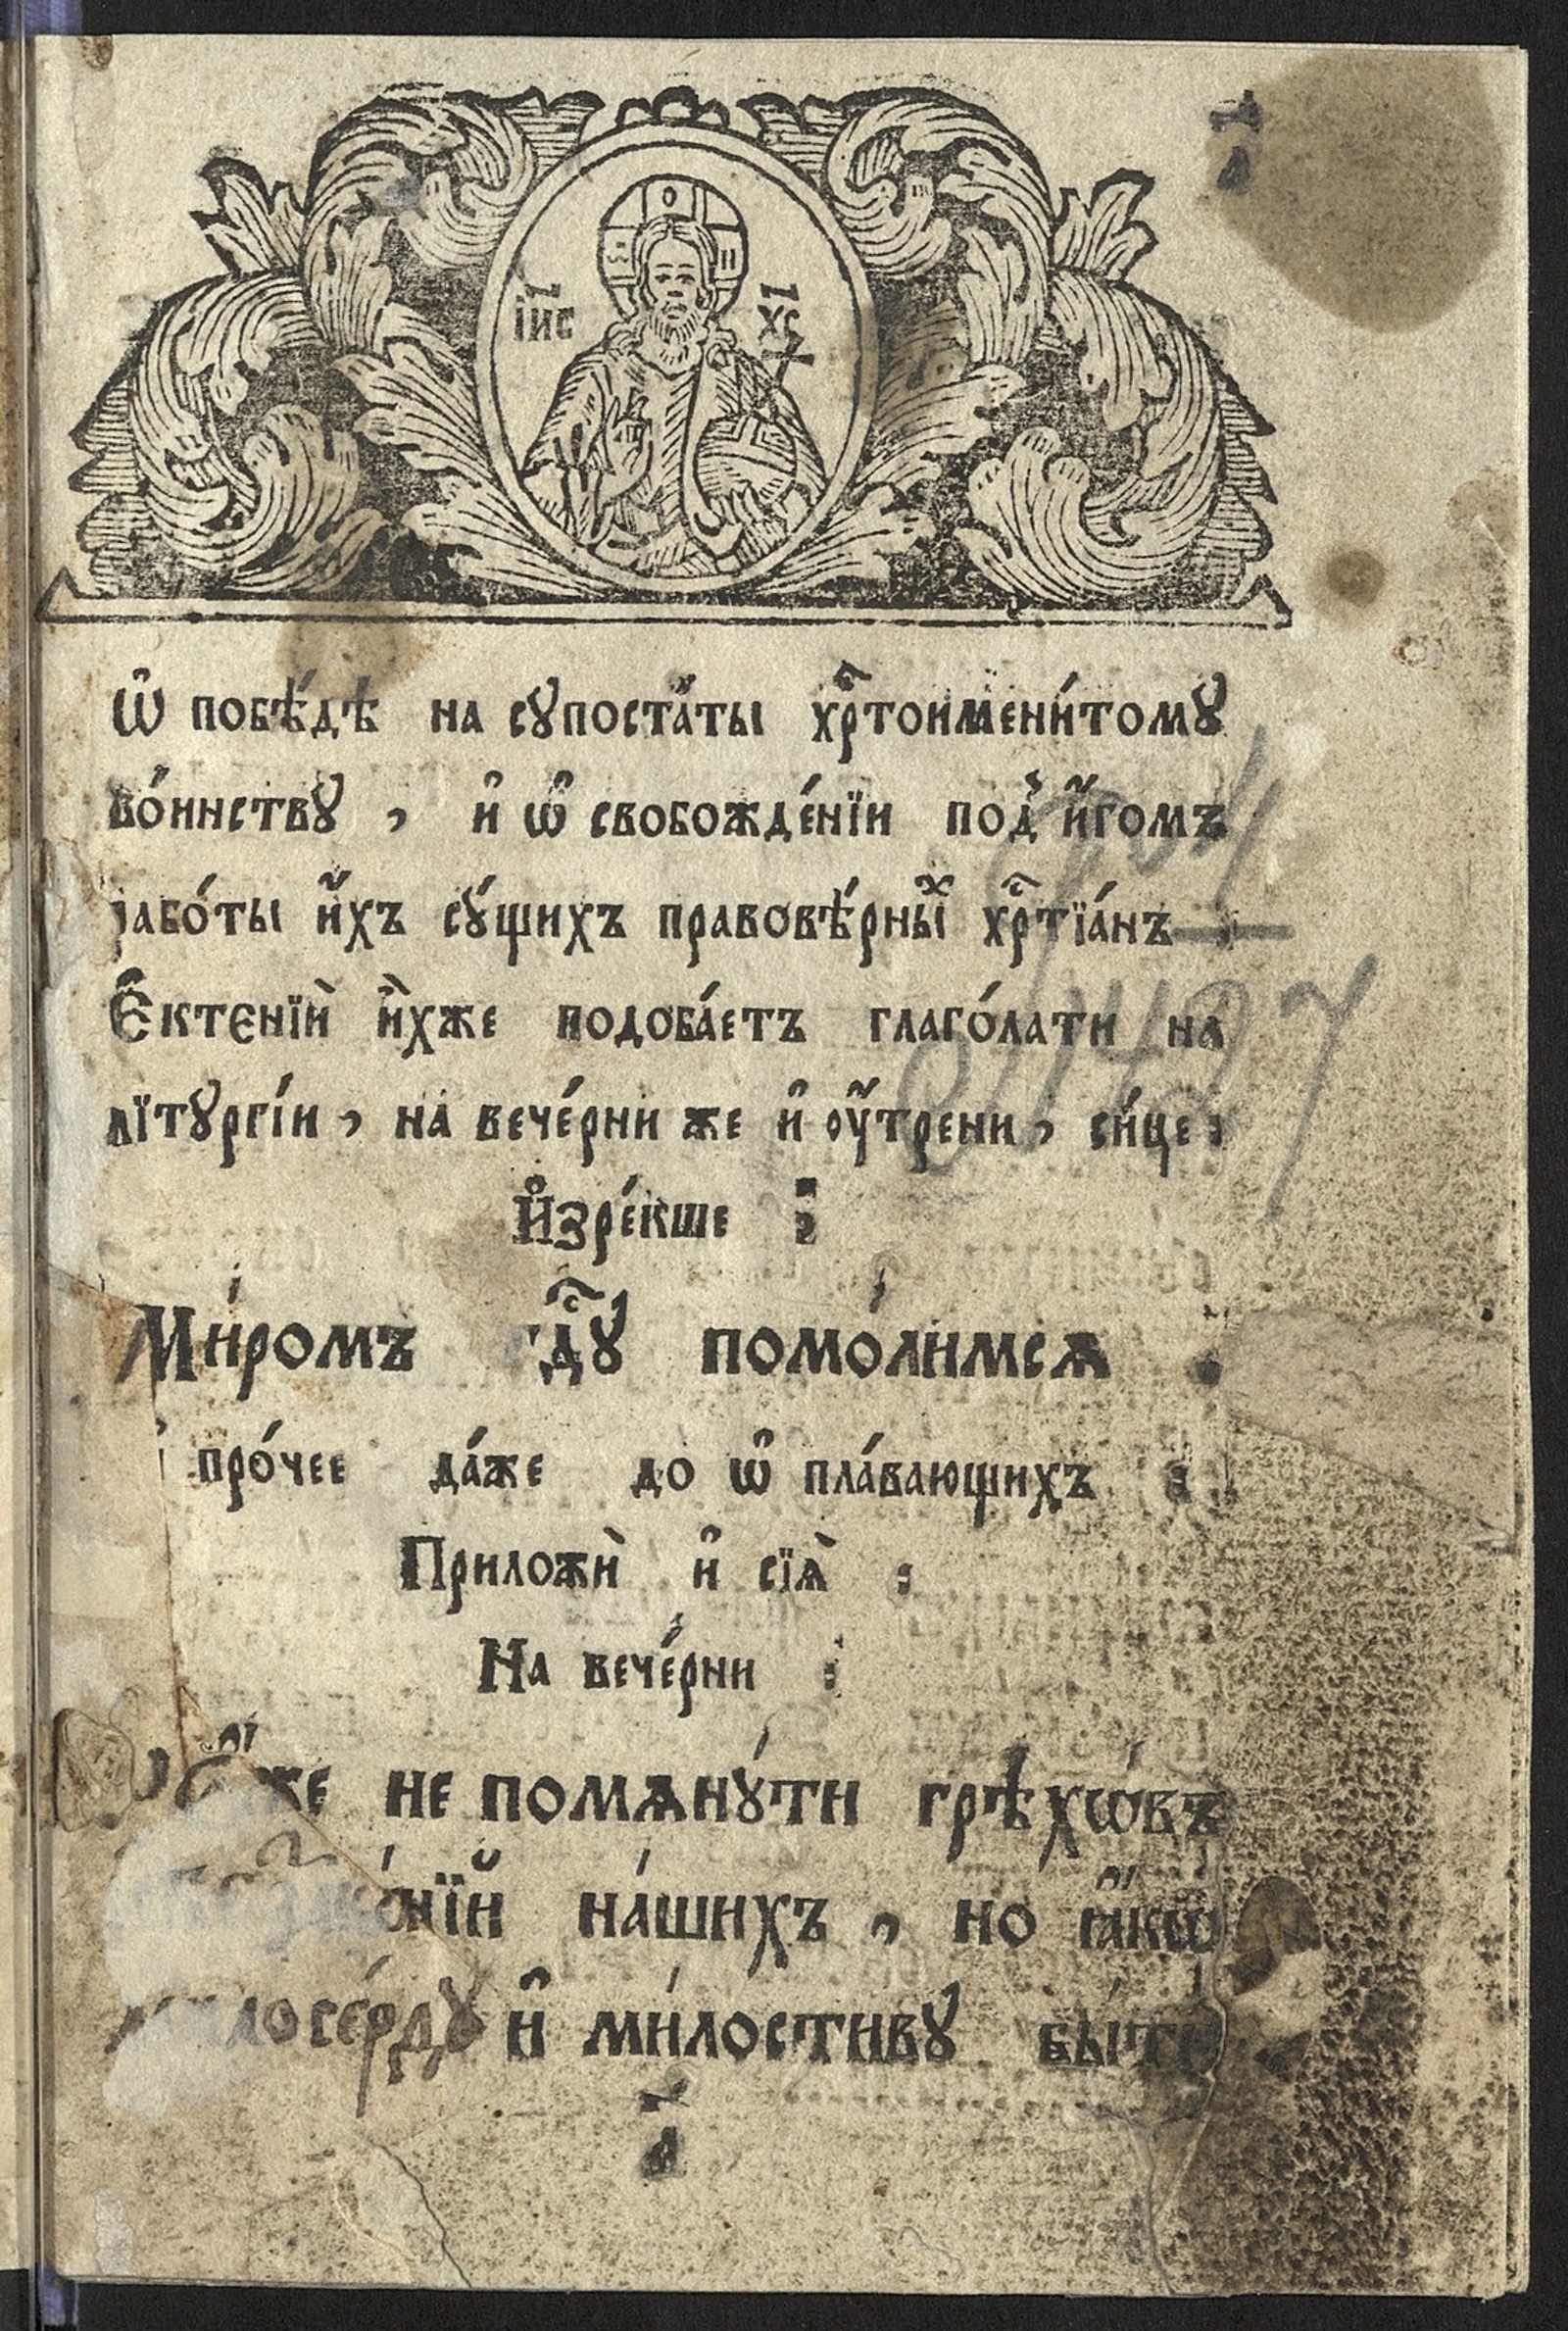 а҃
І҆и҃с Х҃с
Ѡ҆ побѣ́дѣ на сꙋпоста́ты хрⷭ҇тоимени́томꙋ
во́инствꙋ , и҆ ѡ҆ свобожде́нїи под̾ и҆́гомъ
рабо́ты и҆́хъ сꙋ́щихъ правовѣ́рныⷯ хрⷭ҇тїа́нъ
Е҆ктенїи̑ и҆̀хже подоба́етъ глаго́лати на
лїтꙋргі́и , на вече́рни же и҆ ѹ҆́трени , си́це :
И҆зре́кше :
Ми́ромъ гдⷭ҇ꙋ помо́лимсѧ
и҆ про́чее да́же до ѡ҆ пла́вающихъ :
Приложѝ и҆ сїѧ̀ :
На вече́рни :
Е҆́же не помѧнꙋ́ти грѣхѡ́въ
на́шихъ , но ꙗ҆́кѡ
милосе́рдꙋ и҆ ми́лостивꙋ бы́ти
а҃